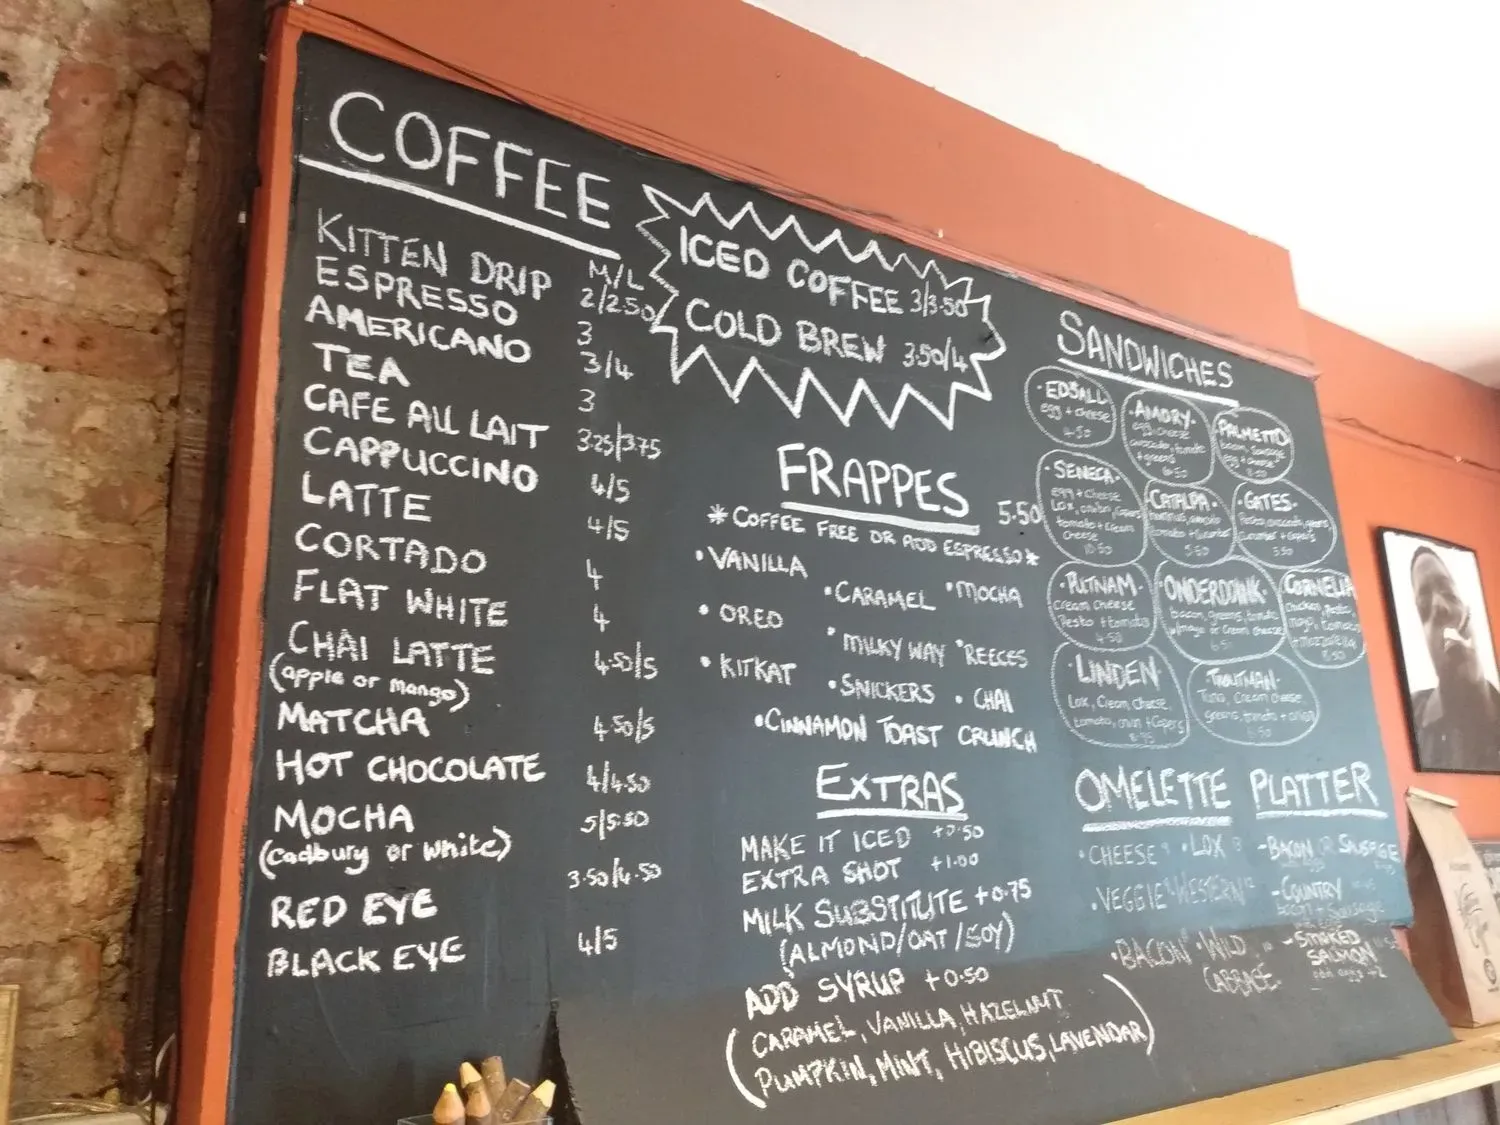 COFFEE
M/L
KITTEN DRIP 2/2.50
ESPRESSO 3
AMERICANO 3/4
TEA 3
CAFE AU LAIT 3.25/3.75
CAPPUCCINO 4/5
LATTE 4/5
CORTADO 4
FLAT WHITE 4
CHAI LATTE 4.50/5
(apple or mango)
MATCHA 4.50/5
HOT CHOCOLATE 4/4.50
MOCHA 5/5.50
(cadbury or white)
RED EYE 3.50/4.50
BLACK EYE 4/5
ICED COFFEE 3/3.50
COLD BREW 3.50/4
FRAPPES 5.50
*COFFEE FREE OR ADD ESPRESSO*
•VANILLA
•CARAMEL •MOCHA
•OREO
•MILKY WAY •REECES
•KITKAT
•SNICKERS •CHAI
•CINNAMON TOAST CRUNCH
EXTRAS
MAKE IT ICED +0.50
EXTRA SHOT +1.00
MILK SUBSTITUTE +0.75
(ALMOND/OAT/SOY)
ADD SYRUP +0.50
(CARAMEL, VANILLA, HAZELNUT
PUMPKIN, MINT, HIBISCUS, LAVENDAR)
SANDWICHES
•EDSALL•
egg + cheese
4.50
•AMORY•
egg, cheese
avocado, tomato
+ greens
6.50
PALMETTO
bacon, sausage
egg + cheese
•SENECA•
egg + cheese
Lox, onion, capers
tomato + cream
cheese
10.50
•CATALPA•
hummus, avocado
tomato + cucumber
5.50
•GATES•
Pesto, avocado, greens
cucumber + capers
5.50
•PUTNAM•
Cream cheese
Pesto + tomato
4.50
•ONDERDONK•
bacon, greens, tomato
w/mayo or cream cheese
6.50
CORNELIA
Chicken, Pesto,
mayo, tomato
+ mozzarella
8.50
•LINDEN
Lox, Cream Cheese,
tomato, onion + capers
•TROUTMAN•
Tuna, Cream cheese
greens, tomato + onion
OMELETTE PLATTER
•CHEESE •LOX
•VEGGIE •WESTERN
•BACON •WILD
CABBAGE
-BACON OR SAUSAGE
-COUNTRY
-SMOKED
SALMON
add eggs +2